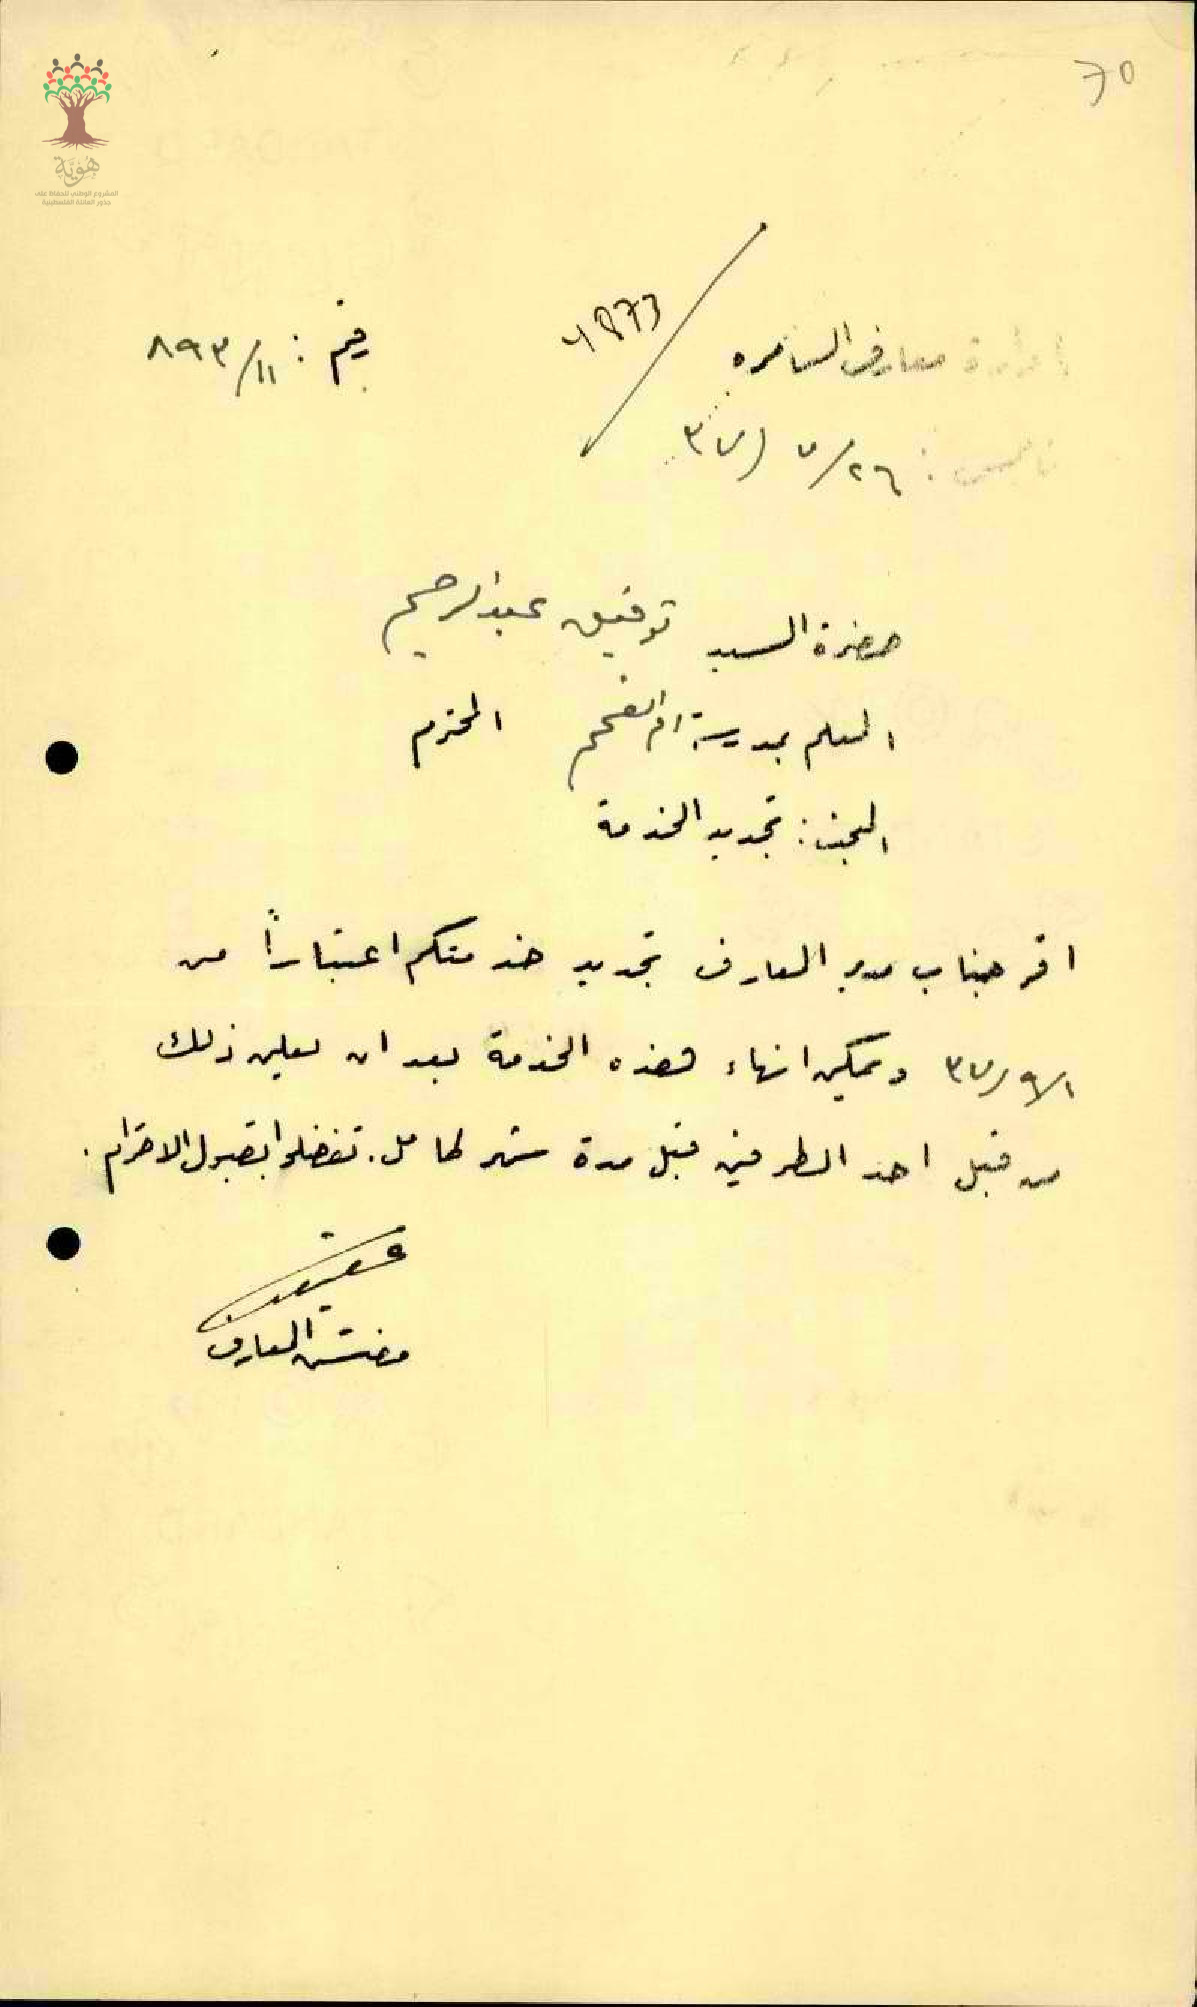 ٦٥
هُوِيَّة
المشروع الوطني للحفاظ على
جذور العائلة الفلسطينية
معارف السامره
رقم : ١١/ ٨٩٣
نابلس : ٢٦/ ٧ / ٣٧
حضرة السيد توفيق عبد الرحيم
المعلم بمدرسة ام الفحم المحترم
البحث : تجديد الخدمة
اقر جناب مدير المعارف تجديد خدمتكم اعتباراً من
١/ ٩/ ٣٧ ويمكن انهاء هذه الخدمة بعد ان يعلن ذلك
من قبل احد الطرفين قبل مدة شهر كامل. تفضلوا بقبول الاحترام.
مفتش المعارف